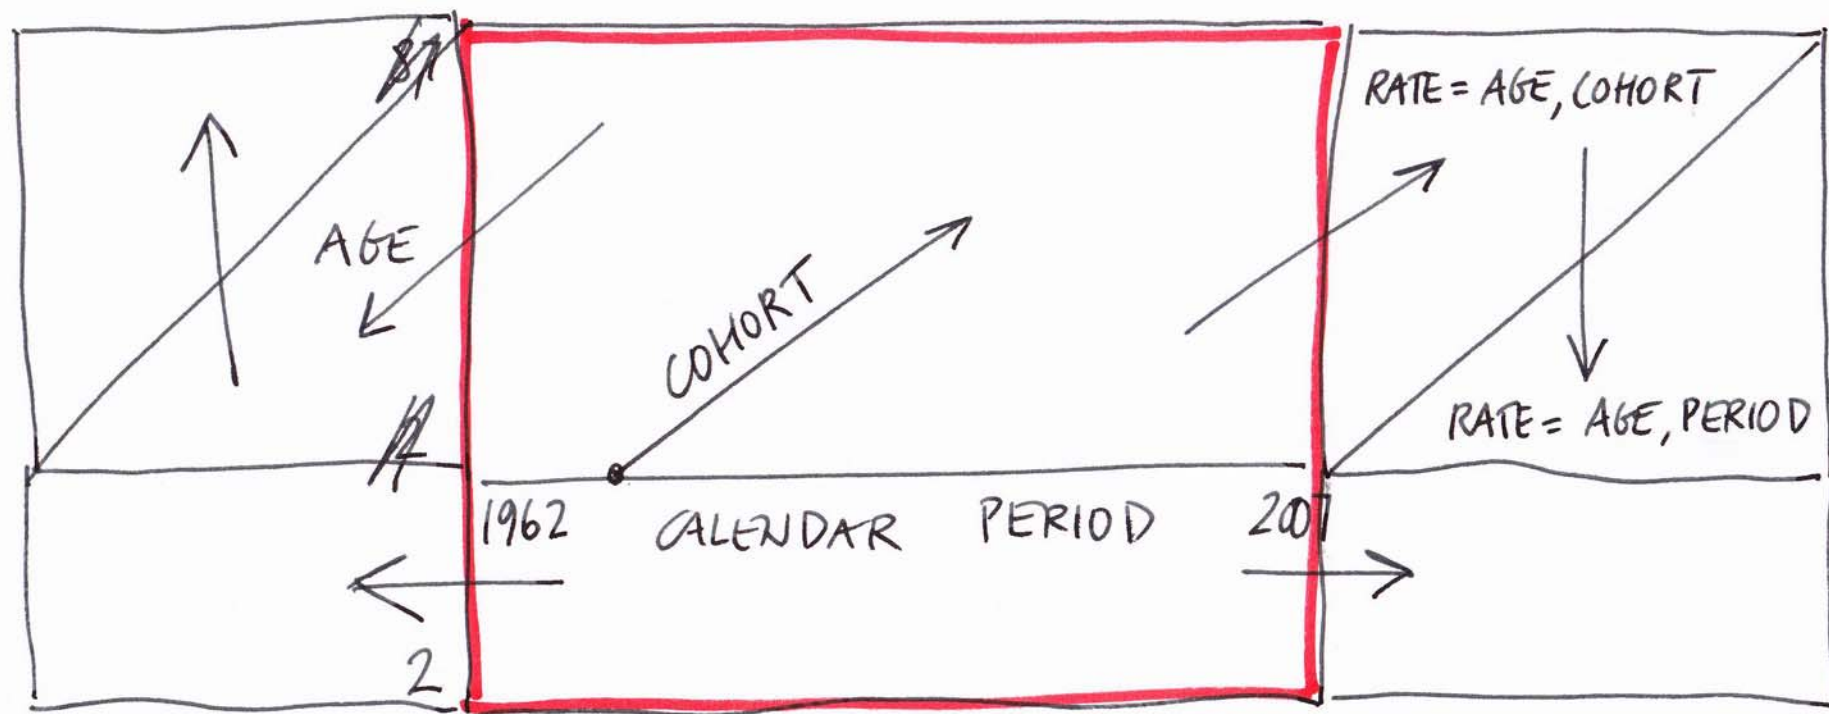 RATE = AGE, COHORT
AGE
COHORT
RATE = AGE, PERIOD
1962 CALENDAR PERIOD 2007
2